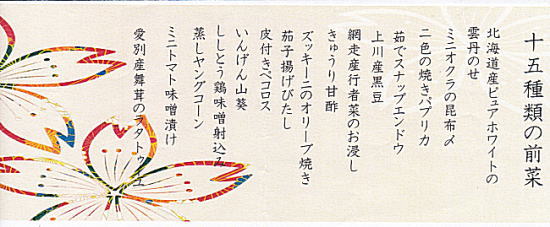 十五種類の前菜
北海道産ピュアホワイトの
雲丹のせ
ミニオクラの昆布〆
二色の焼きパプリカ
茹でスナップエンドウ
上川産黒豆
網走産行者菜のお浸し
きゅうり甘酢
ズッキーニのオリーブ焼き
茄子揚げびたし
皮付きペコロス
いんげん山葵
ししとう鶏味噌射込み
蒸しヤングコーン
ミニトマト味噌漬け
愛別産舞茸のラタトゥイユ